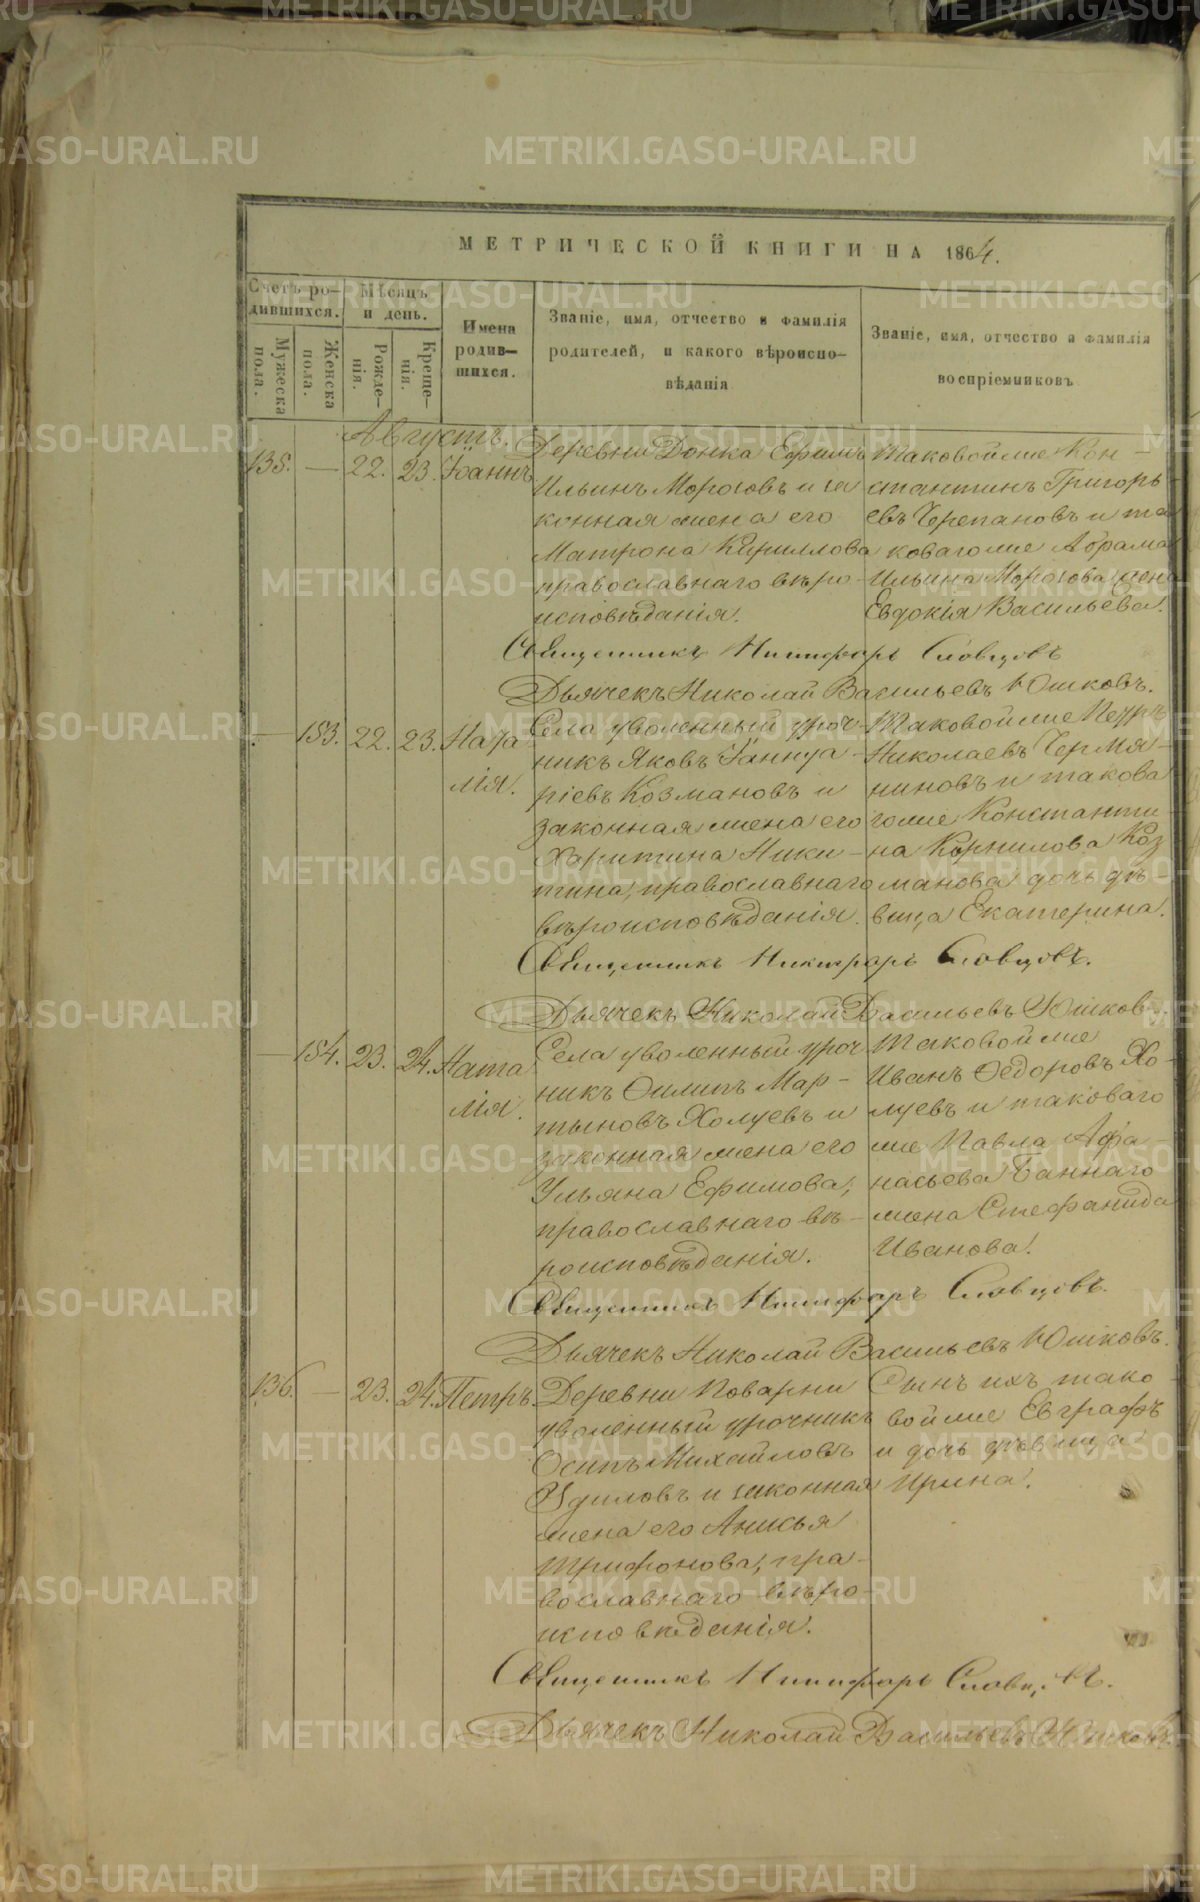 МЕТРИЧЕСКОЙ КНИГИ НА 1864.
Счетъ ро-
дившихся.
Мѣсяцъ
и день.
Имена
родив-
шихся.
Званіе, имя, отчество и фамилія
родителей, и какого вѣроиспо-
вѣданія
Званіе, имя, отчество и фамилія
воспріемниковъ
Мужеска
пола.
Женска
пола.
Рожде-
нія.
Креще-
нія.
Августъ.
135. — 22. 23. Іоаннъ
Деревни Донка Ефимъ
Ильинъ Морозовъ и за
конная жена его
Матрона Кириллова
православнаго вѣро-
исповѣданія.
Таковой же Кон-
стантинъ Григорь
евъ Черепановъ и та
коваго же Абрама
Ильина Морозова жена
Евдокія Васильева.
Священникъ Никифоръ Словцовъ
Дьячекъ Николай Васильевъ Юшковъ.
— 153. 22. 23. Ната
лія.
Села уволенный уроч-
никъ Яковъ Іаннуа-
ріевъ Козмановъ и
законная жена его
Харитина Ники-
тина, православнаго
вѣроисповѣданія.
Таковой же Петръ
Николаевъ Чермя-
ниновъ и такова
го же Константи-
на Корнилова Коз
манова дочь дѣ-
вица Екатерина.
Священникъ Никифоръ Словцовъ.
Дьячекъ Николай Васильевъ Юшковъ.
— 154. 23. 24. Ната
лія.
Села уволенный уроч
никъ Филипъ Мар-
тыновъ Холуевъ и
законная жена его
Ульяна Ефимова,
православнаго вѣ-
роисповѣданія.
Таковой же
Иванъ Федоровъ Хо-
луевъ и таковаго
же Павла Афа-
насьева Баннаго
жена Стефанида
Иванова.
Священникъ Никифоръ Словцовъ.
Дьячекъ Николай Васильевъ Юшковъ.
136. — 23. 24. Петръ.
Деревни Поварни
уволенный урочникъ
Осипъ Михайловъ
Удиловъ и законная
жена его Анисья
Трифонова, пра-
вославнаго вѣро-
исповѣданія.
Сынъ ихъ тако-
вой же Евграфъ
и дочь дѣвица
Ирина.
Священникъ Никифоръ Словцовъ.
Дьячекъ Николай Васильевъ Юшковъ.
METRIKI.GASO-URAL.RU